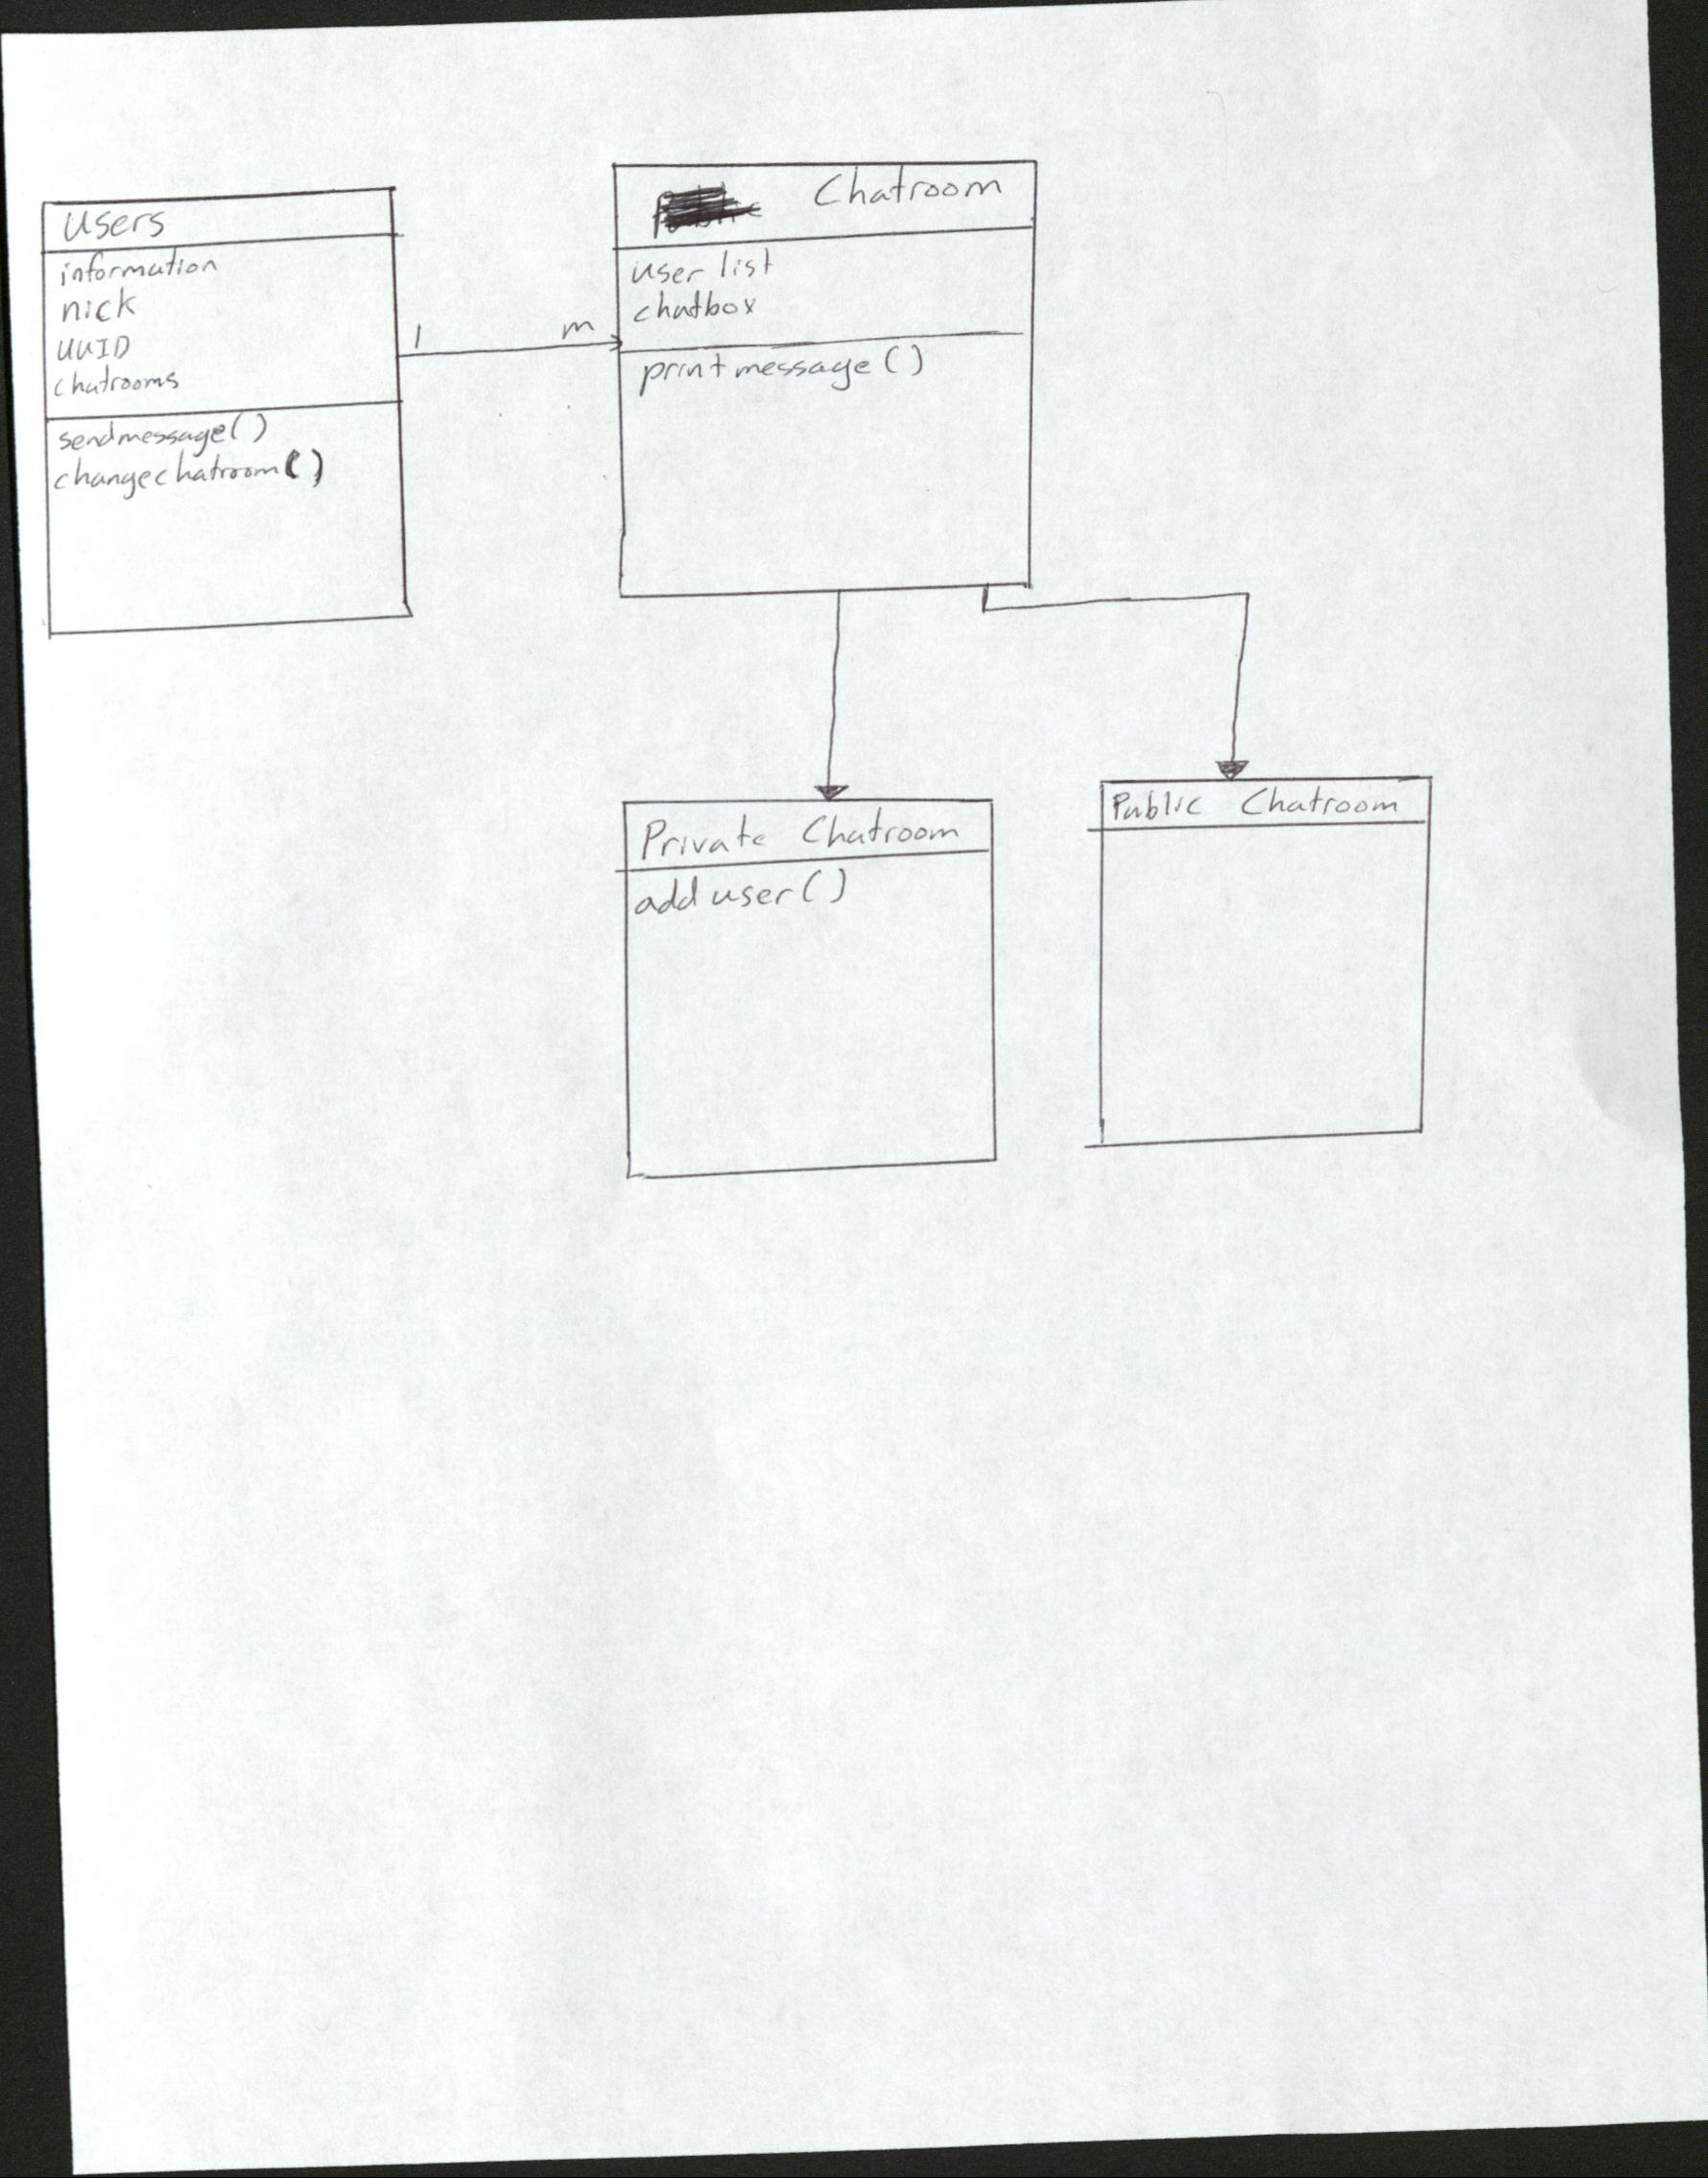 Users
information
nick
UUID
chatrooms
sendmessage()
changechatroom()
1
m
Chatroom
user list
chatbox
printmessage()
Private Chatroom
add user()
Public Chatroom